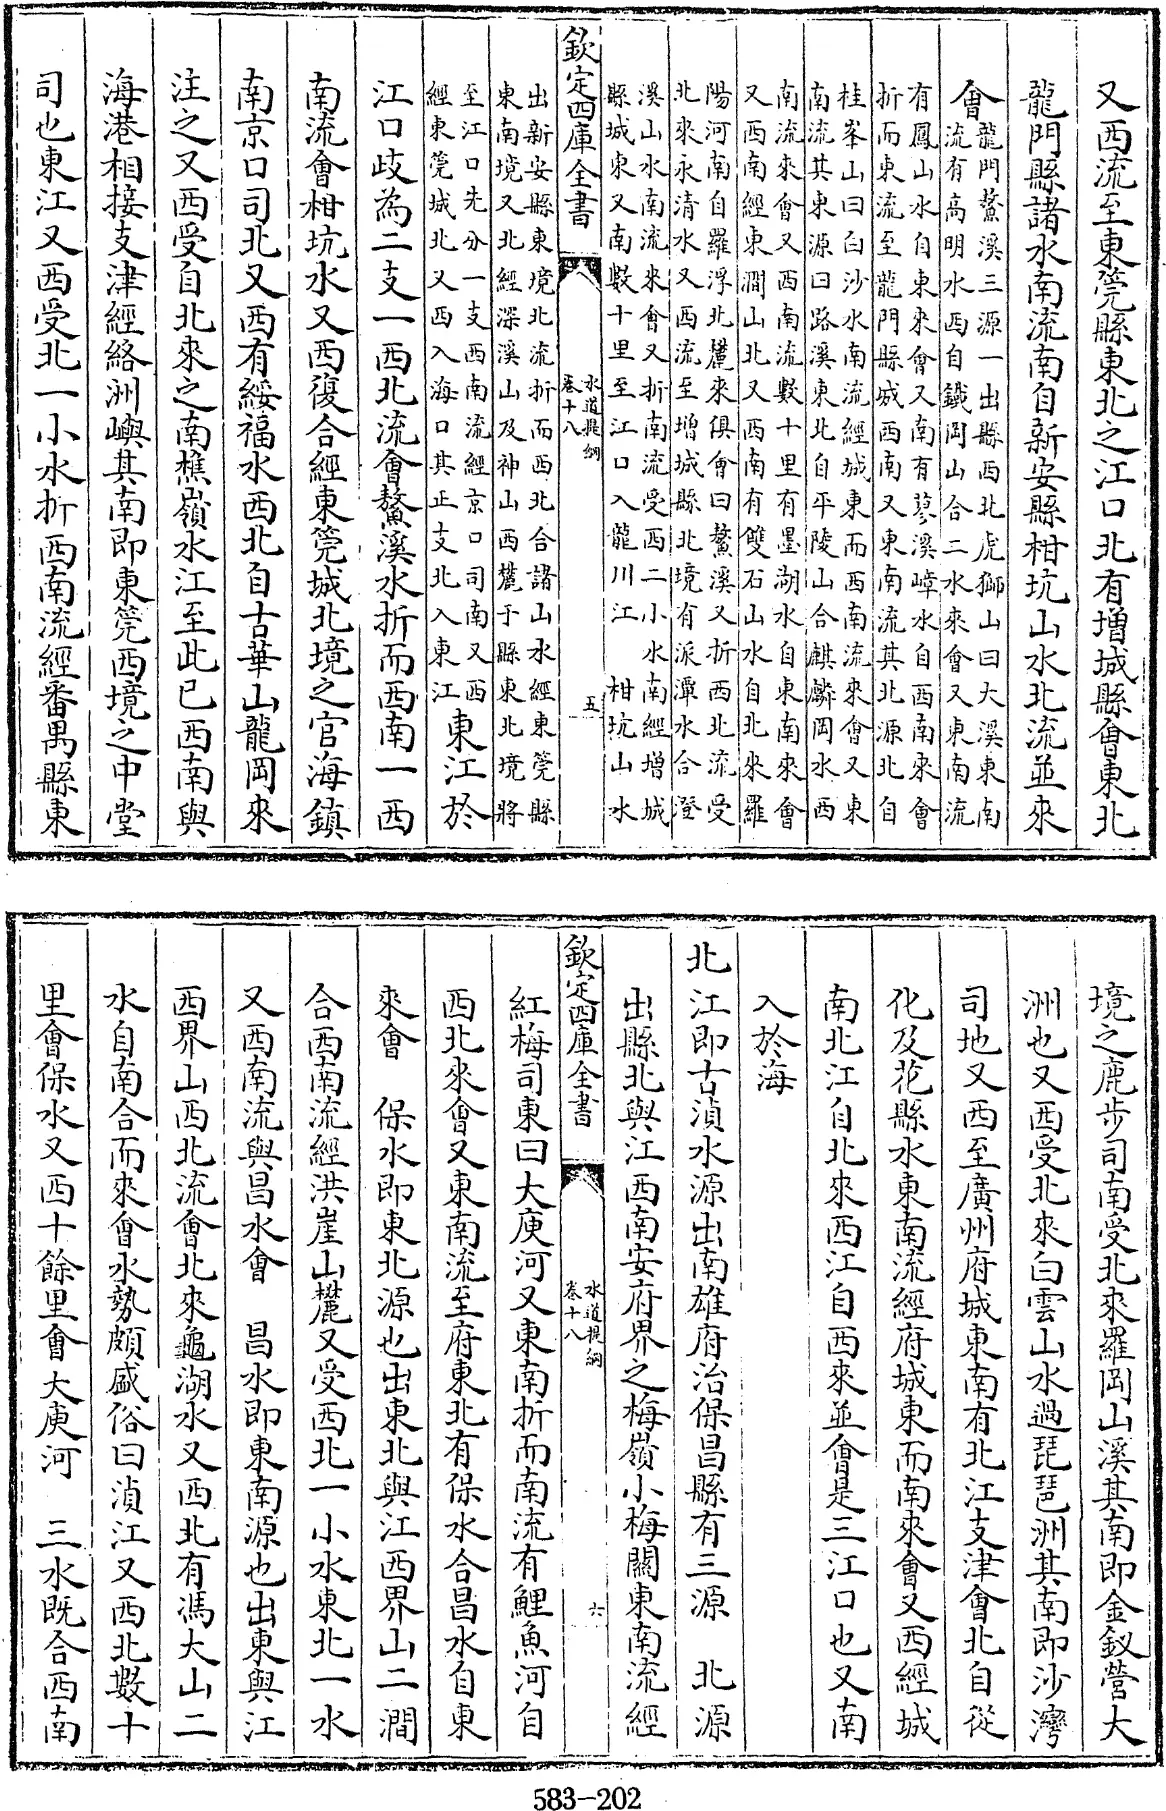 又西流至東莞縣東北之江口北有增城縣會東北
龍門縣諸水南流南自新安縣柑坑山水北流並來
會龍門鰲溪三源一出縣西北虎獅山曰大溪東南
流有高明水西自鐵岡山合二水來會又東南流
有鳳山水自東來會又南有蓼溪嶂水自西南來會
折而東流至龍門縣城西南又東南流其北源北自
桂峯山曰白沙水南流經城東而西南流來會又東
南流其東源曰路溪東北自平陵山合麒麟岡水西
南流來會又西南流數十里有墨湖水自東南來會
又西南經東澗山北又西南有雙石山水自北來羅
陽河南自羅浮北麓來俱會曰鰲溪又折西北流受
北來永清水又西流至增城縣北境有派潭水合澄
溪山水南流來會又折南流受西二小水南經增城
縣城東又南數十里至江口入龍川江 柑坑山水
欽定四庫全書
水道提綱
卷十八
五
出新安縣東境北流折而西北合諸山水經東莞縣
東南境又北經深溪山及神山西麓于縣東北境將
至江口先分一支西南流經京口司南又西
經東莞城北又西入海口其正支北入東江
東江於
江口歧為二支一西北流會鰲溪水折而西南一西
南流會柑坑水又西復合經東莞城北境之官海鎮
南京口司北又西有綏福水西北自古華山龍岡來
注之又西受自北來之南樵嶺水江至此已西南與
海港相接支津經絡洲嶼其南即東莞西境之中堂
司也東江又西受北一小水折西南流經番禺縣東
境之鹿步司南受北來羅岡山溪其南即金釵營大
洲也又西受北來白雲山水過琵琶洲其南即沙灣
司地又西至廣州府城東南有北江支津會北自從
化及花縣水東南流經府城東而南來會又西經城
南北江自北來西江自西來並會是三江口也又南
入於海
北江即古湞水源出南雄府治保昌縣有三源 北源
出縣北與江西南安府界之梅嶺小梅關東南流經
欽定四庫全書
水道提綱
卷十八
六
紅梅司東曰大庾河又東南折而南流有鯉魚河自
西北來會又東南流至府東北有保水合昌水自東
來會 保水即東北源也出東北與江西界山二澗
合西南流經洪崖山麓又受西北一小水東北一水
又西南流與昌水會 昌水即東南源也出東與江
西界山西北流會北來龜湖水又西北有馮大山二
水自南合而來會水勢頗盛俗曰湞江又西北數十
里會保水又西十餘里會大庾河 三水既合西南
583-202